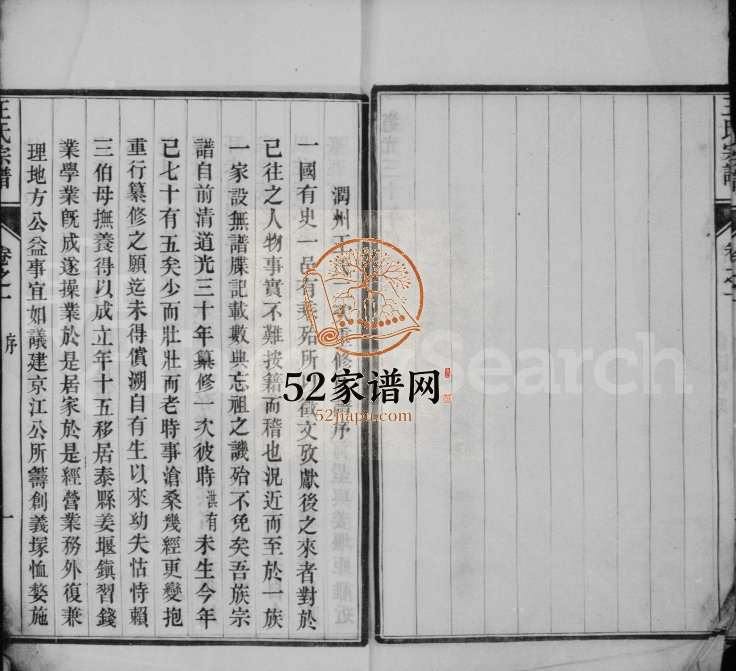 潤州王氏重修序
一國有史一邑有乘殆所徵文攷獻後之來者對於
已往之人物事實不難按籍而稽也況近而至於一族
一家設無譜牒記載數典忘祖之譏殆不免矣吾族宗
譜自前清道光三十年纂修一次彼時淇有未生今年
已七十有五矣少而壯壯而老時事滄桑幾經更變抱
重行纂修之願迄未得償溯自有生以來幼失怙恃賴
三伯母撫養得以成立年十五移居泰縣姜堰鎭習錢
業學業旣成遂操業於是居家於是經營業務外復兼
理地方公益事宜如議建京江公所籌創義塚恤嫠施
王氏宗譜
卷之一
序
一
王氏宗譜
卷之一
52家谱网
52jiapu.com
Search